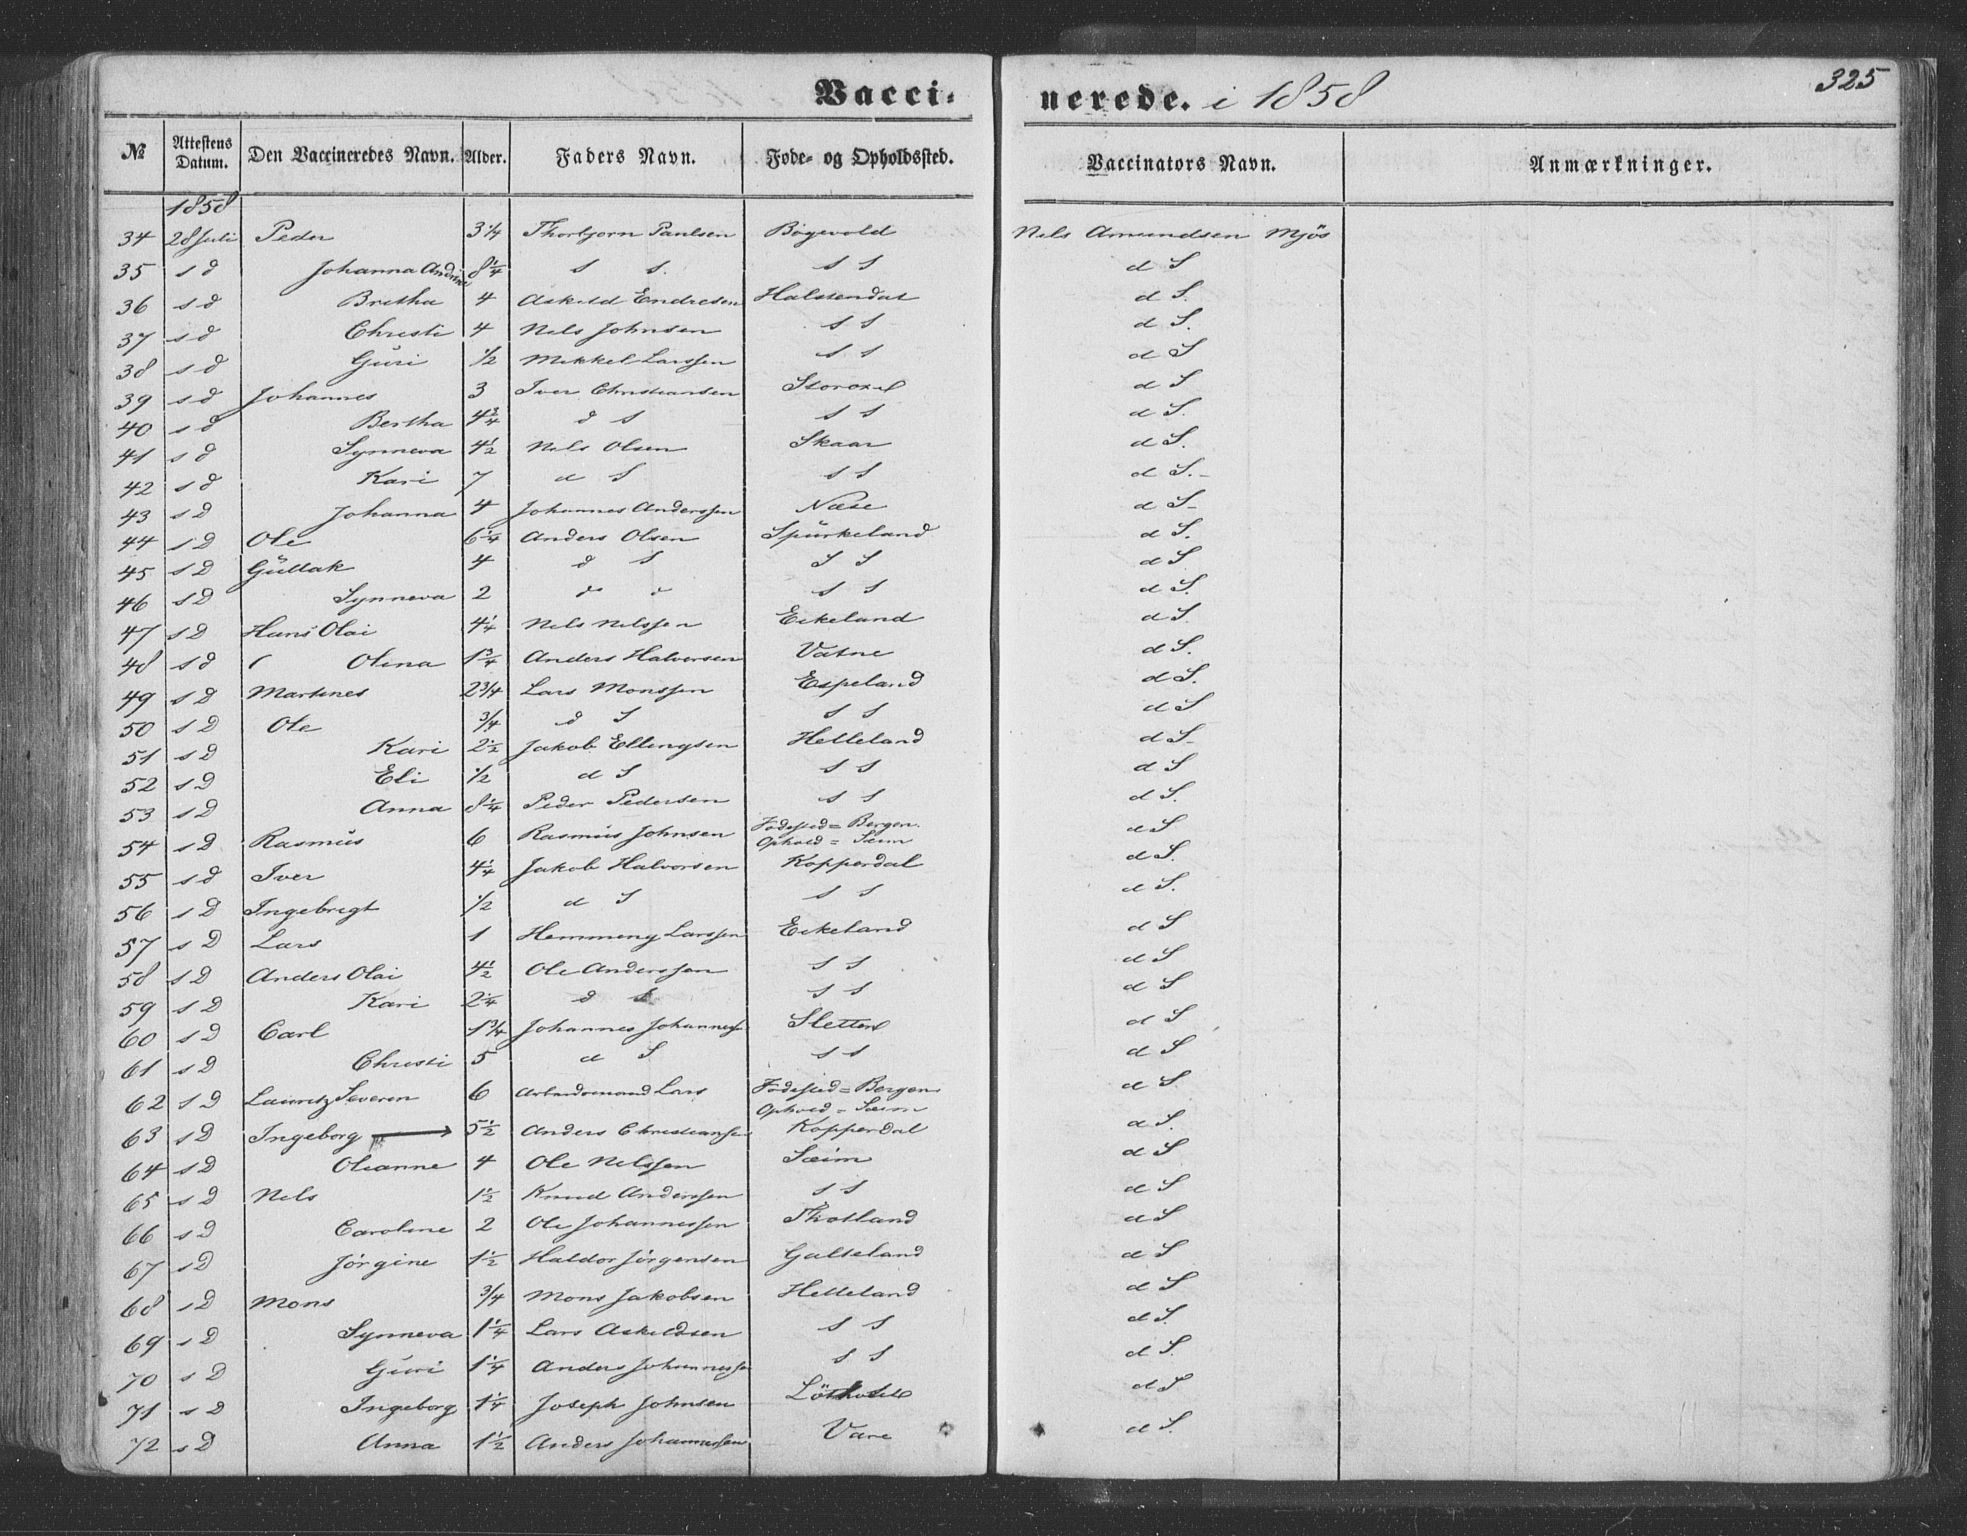 Vacci-
nerede. i 1858
325
№ Attestens Datum. Den Vaccineredes Navn. Alder. Faders Navn. Føde- og Opholdssted. Vaccinators Navn. Anmærkninger.
1858
34 28 Juli Peder 3 1/4 Thorbjørn Paulsen Bøgevold Nels Amundsen Mjøs
35 s d Johanna Andrine 8 1/4 s s. s s d S
36 s d Bretha 4 Askeld Endresen Halstendal d S.
37 s d Christi 4 Nels Johnsen s s d S.
38 s d Guri 1/2 Mekkel Larssen s s d S
39 s d Johannes 3 Iver Christiansen d S
40 s d Bertha 4 3/4 d s s s d S.
41 s d Synneva 4 1/2 Nels Olsen Skaar d S.
42 s d Kari 7 d S s s d S.-
43 s D Johanna 4 Johannes Anderssen Næse d S-
44 s D Ole 6 1/4 Anders Olsen Spürkeland d S.
45 s D Güllak 4 d S S S d S.
46 s D Synneva 2 d d s s d S.
47 s D Hans Olai 4 1/4 Nels Nelssen Eikeland d S.
48 s d Olina 1 3/4 Anders Halversen Vatne d S.
49 s D Martines 2 3/4 Lars Monssen Espeland d S.
50 s D Ole 3/4 d S s s d S
51 s D Kari 2 1/2 Jakob Ellengsen Helleland d S-
52 s D Eli 1/2 d S s s d S
53 s D Anna 8 1/4 Peder Pedersen s s d S.
54 s D Rasmüs 6 Rasmüs Johnsen Fødested = Bergen. d S
Ophold = Sæim
55 s d Iver 4 1/4 Jakob Halvorsen Kopperdal d S.
56 s D Ingebregt 1/2 d S s s d S.
57 s D Lars 1 Hemmeng Larssen Eikeland d S
58 s D Anders Olai 4 1/2 Ole Anderssen s s d S
59 s D Kari 2 1/4 d s s s d S
60 s D Carl 1 3/4 Johannes Johannes Slette d S
61 s D Christi 5 d S s s d S
62 s D Lauretz Severen 6 Arbeidsmand Lars Fødested = Bergen d S.
Ophold = Sæim
63 s D Ingeborg 5 1/2 Anders Christiansen Kopperdal d S.
64 s D Olianne 4 Ole Nelssen Sæim d S
65 s D Nels 1 1/2 Knud Anderssen s s d S
66 s D Caroline 2 Ole Johannessen Thotland d S
67 s D Jørgine 1 1/2 Haldor Jørgensen Galteland d S
68 s D Mons 3/4 Mons Jakobsen Helleland d S
69 s D Synneva 1 1/4 Lars Askeldsen s s d S.
70 s D Guri 1 1/4 Anders Johannessen s s d S.
71 s D Ingeborg 1 1/4 Joseph Johnsen d S
72 s D Anna 1 1/2 Anders Johannessen Vare d S.